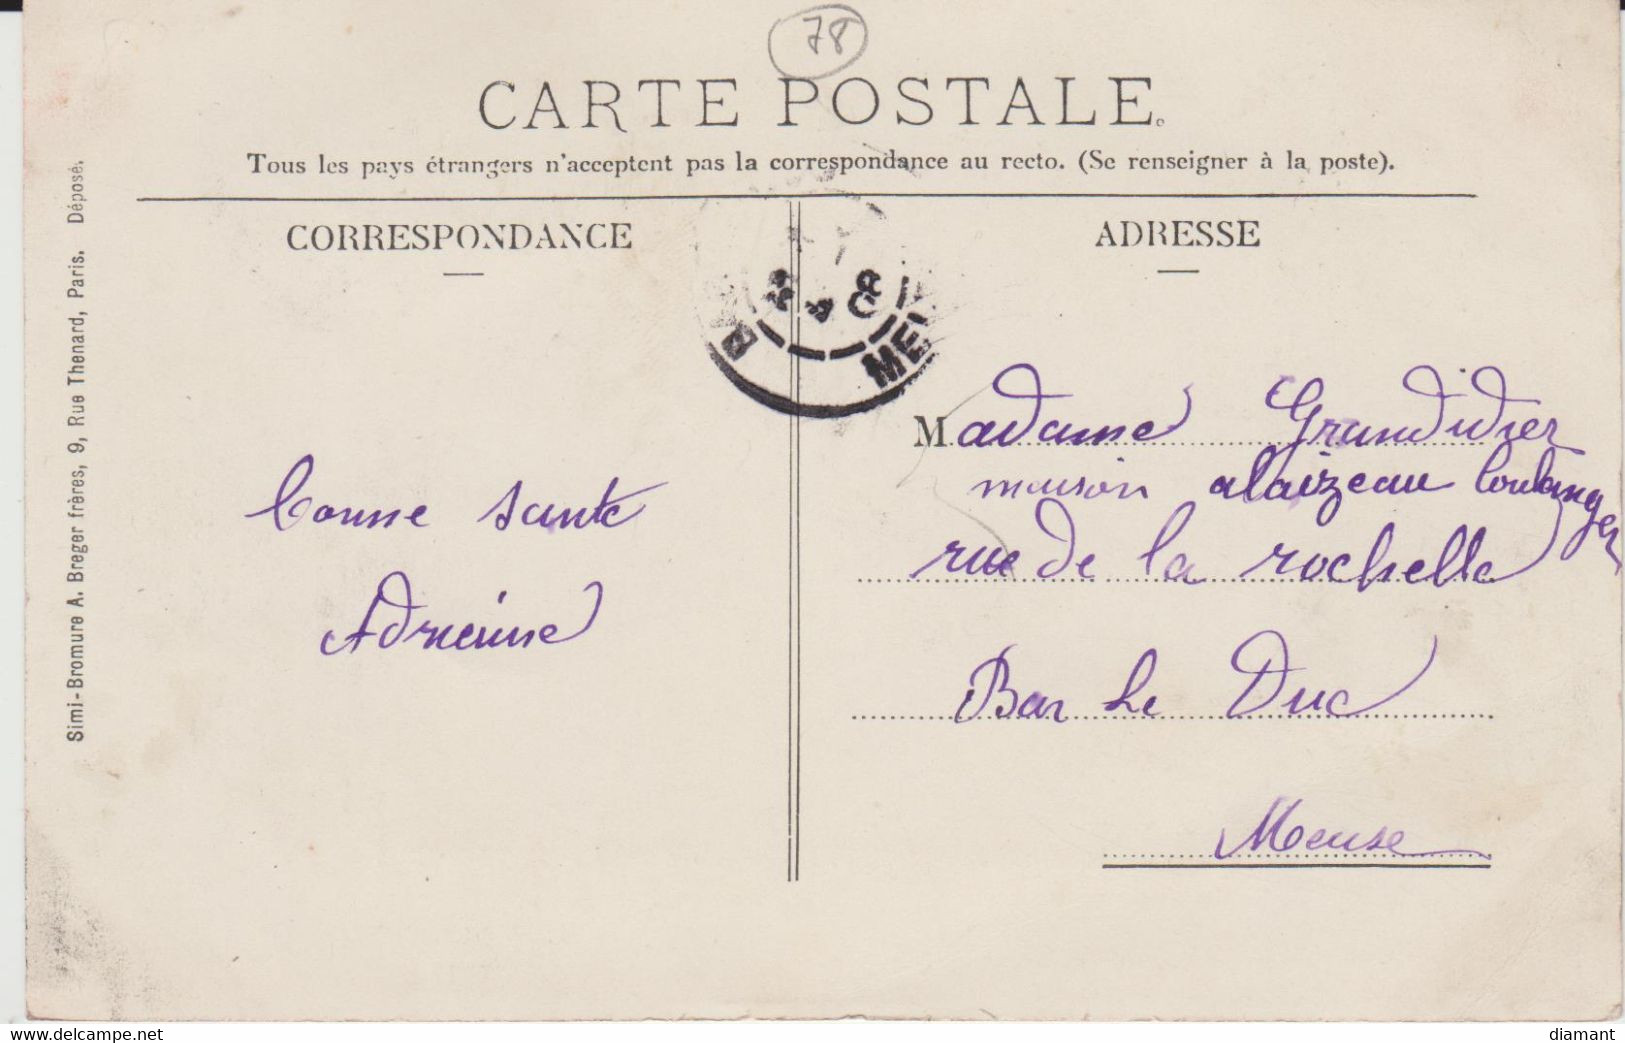 78
CARTE POSTALE.
Tous les pays étrangers n'acceptent pas la correspondance au recto. (Se renseigner à la poste).
CORRESPONDANCE
Bonne santé
Adrienne
ADRESSE
Madame Grandidier
maison alaizeau boulanger
rue de la rochelle
Bar le Duc
Meuse
B
8 4 08
MEU
Simi-Bromure A. Breger frères, 9, Rue Thenard, Paris. Déposé.
delcampe.net
diamant